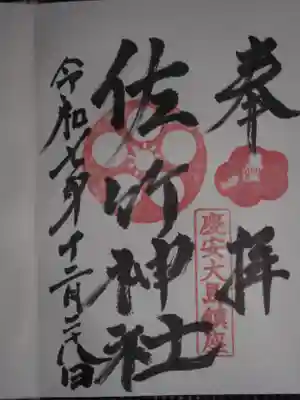 奉拝
慶安大馬鎮座
佐竹神社
令和七年十二月二十八日